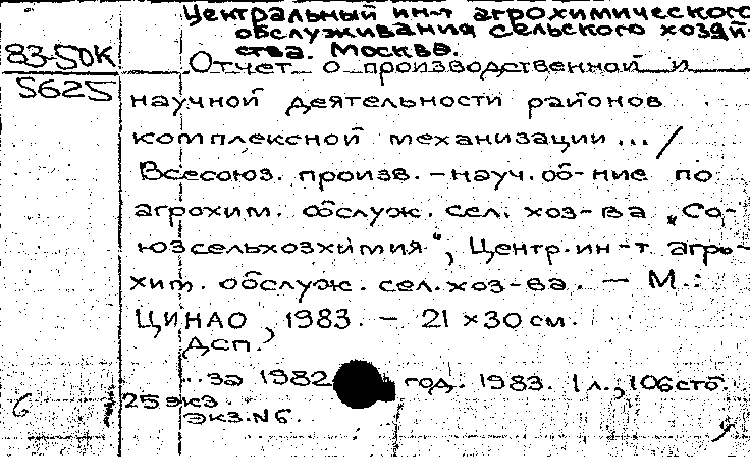 Центральный ин-т агрохимического
обслуживания сельского хозяй-
ства. Москва.
83-5ОК
5625
Отчет о производственной и
научной деятельности районов
комплексной механизации ... /
Всесоюз. произв. - науч. об-ние по
агрохим. обслуж. сел. хоз-ва „Со-
юзсельхозхимия“, Центр. ин-т агро-
хим. обслуж. сел. хоз-ва. — М.:
ЦИНАО, 1983. - 21 × 30 см.
ДСП.
..за 1982 год. 1983. 1 л., 106 стб.
25 экз.
Экз. N 6.
6